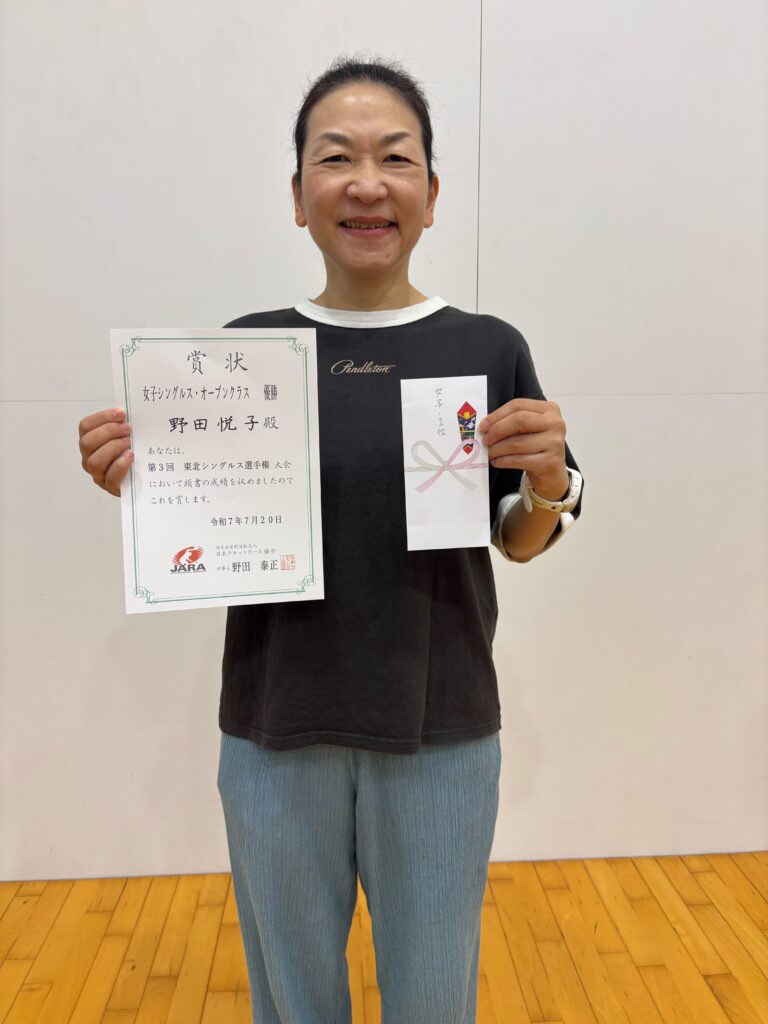 賞状
女子シングルス・オープンクラス 優勝
野田悦子殿
あなたは、
第3回 東北シングルス選手権大会
において頭書の成績を収めましたので
これを賞します。
令和7年7月20日
特定非営利活動法人
日本ラケットボール協会
理事長 野田 泰正
JARA
Pendleton
女子・1位